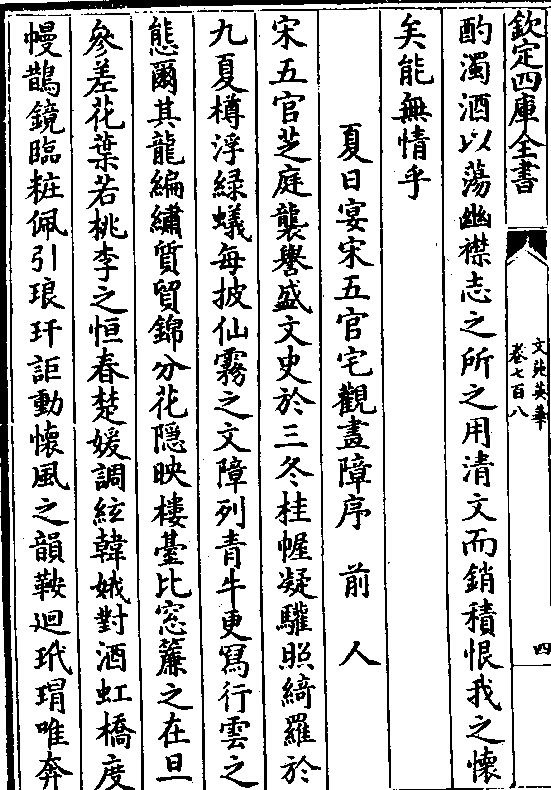 欽定四庫全書
文苑英華
卷七百八
四
酌濁酒以蕩幽襟志之所之用清文而銷積恨我之懷
矣能無情乎
夏日宴宋五官宅觀畫障序　前　人
宋五官芝庭襲譽盛文史於三冬桂幄凝驩照綺羅於
九夏樽浮緑蟻每披仙霧之文障列青牛更冩行雲之
態爾其龍編繡質貿錦分花隱映樓臺比窓簾之在旦
參差花葉若桃李之恒春楚媛調絃韓娥對酒虹橋度
幔鵲鏡臨粧佩引琅玕詎動懷風之韻鞍迴玳瑁唯奔